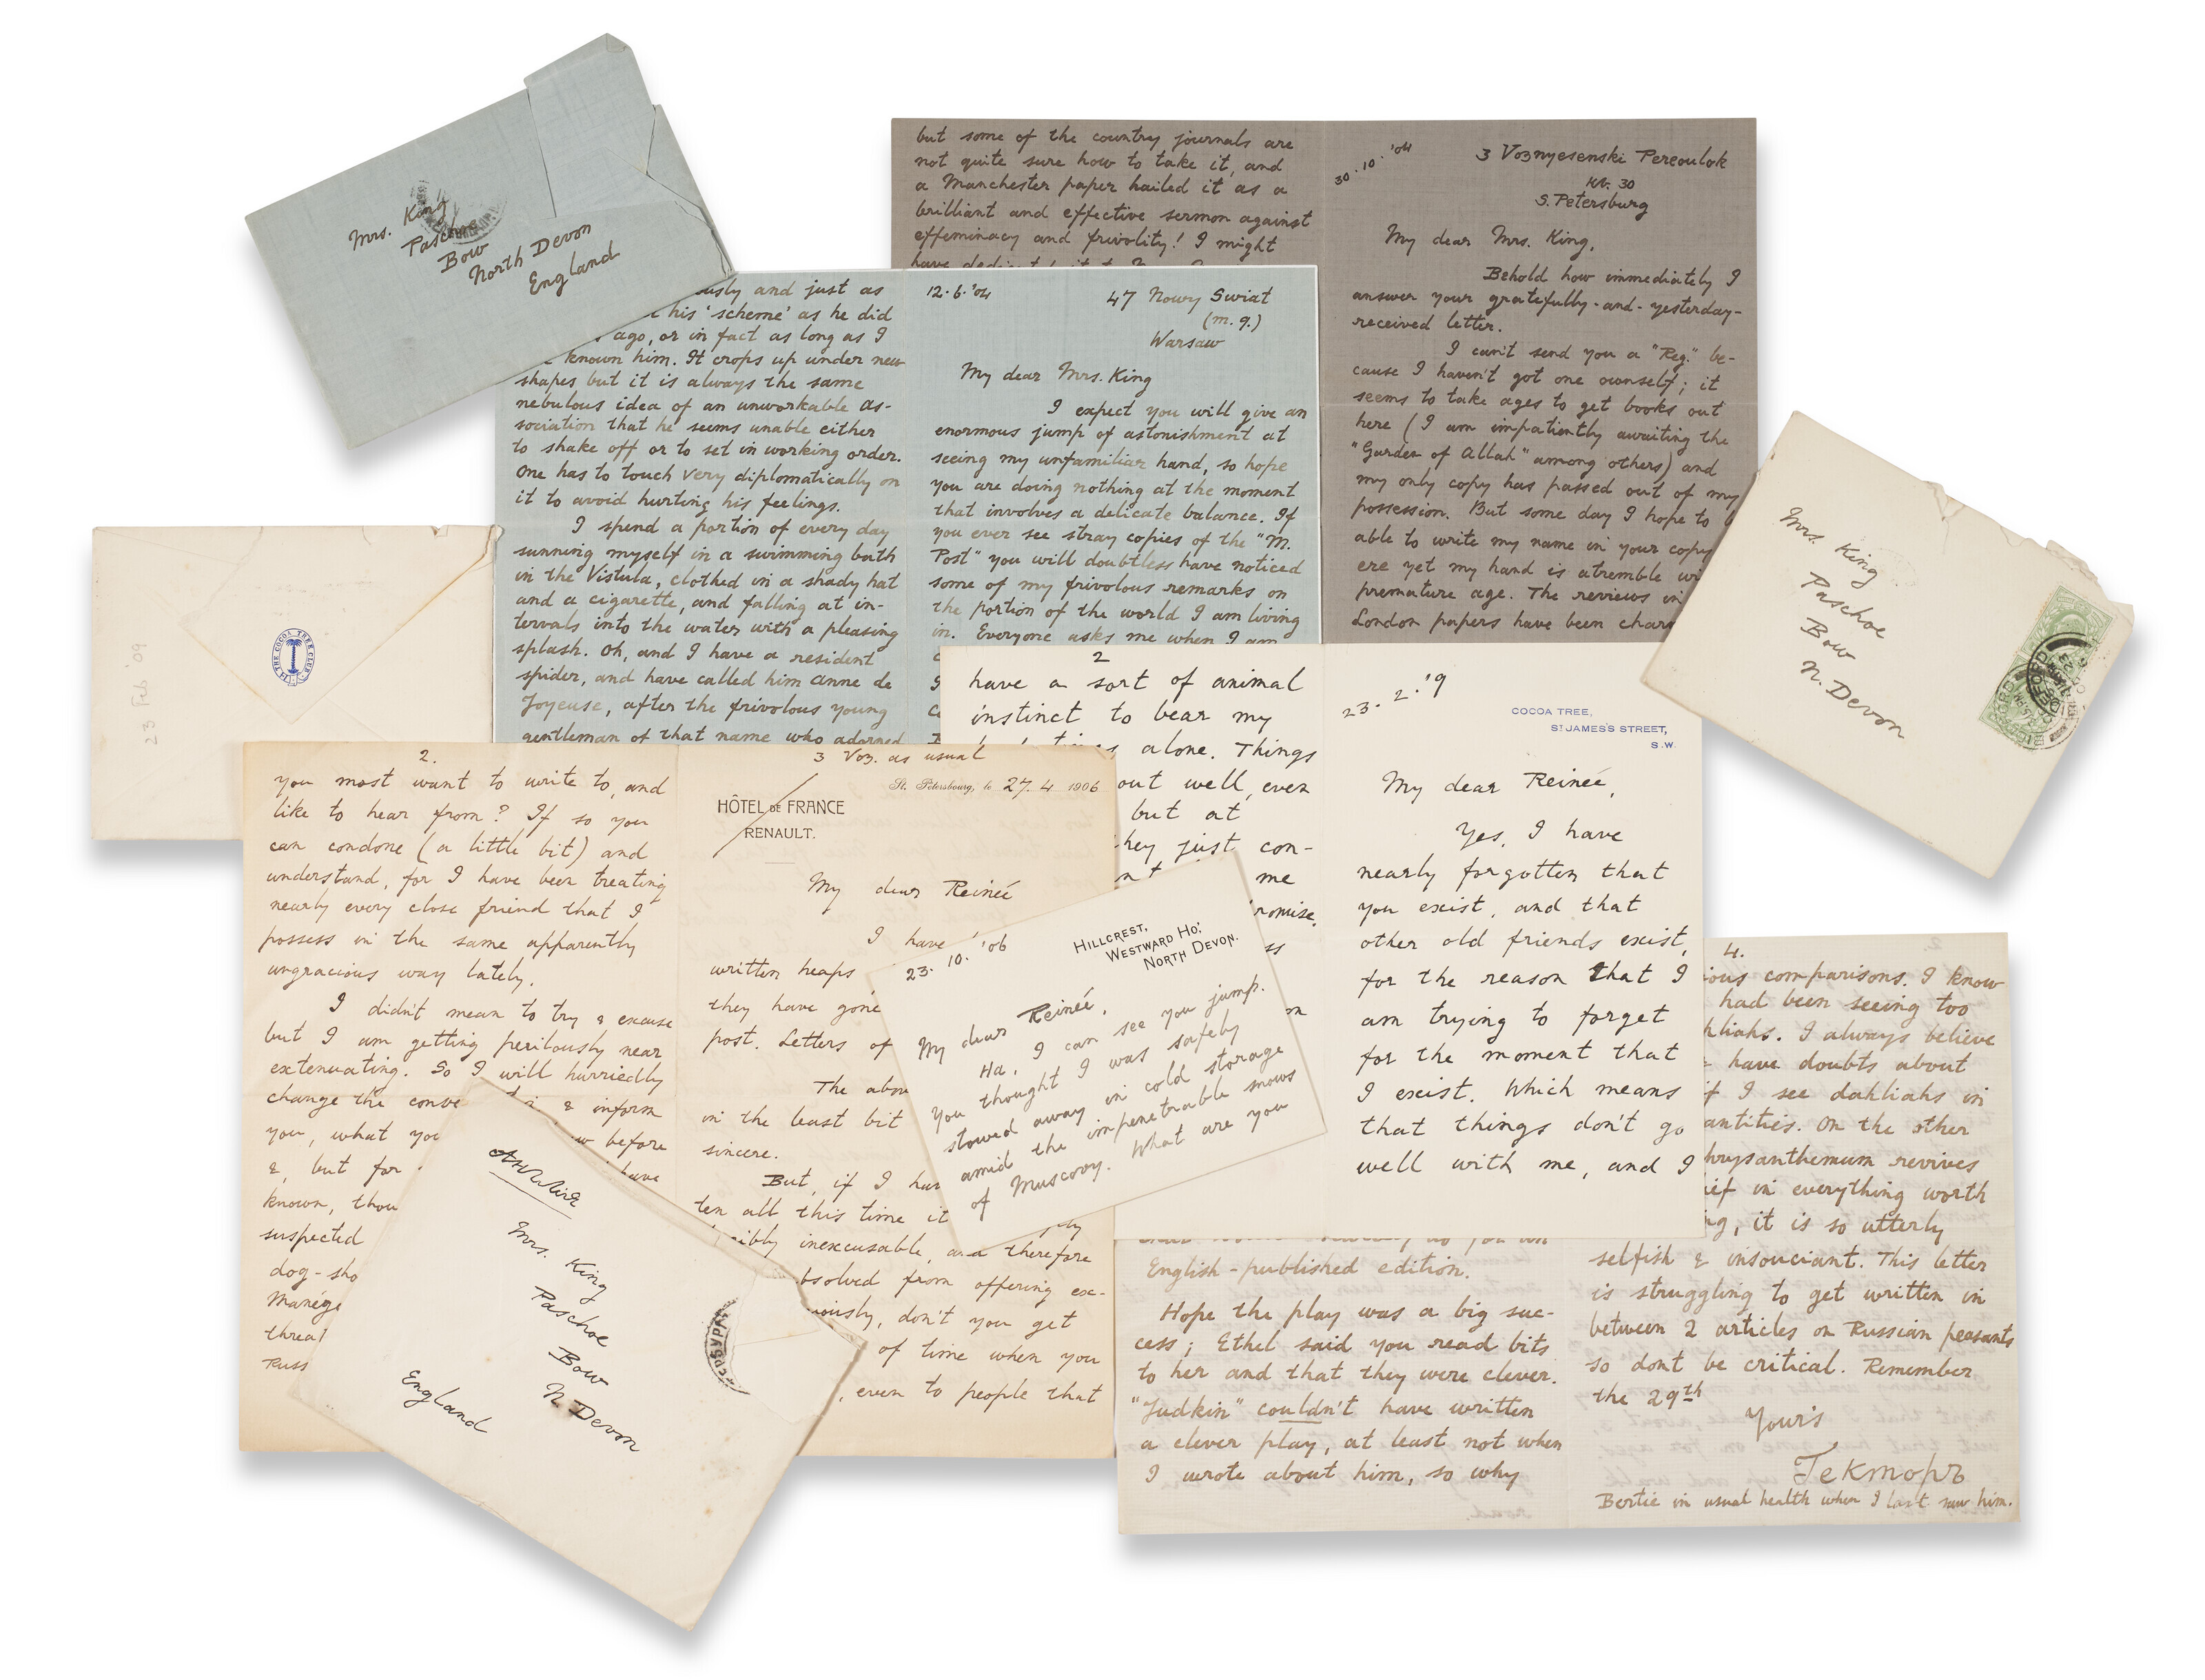 Mrs. King
Paschoe
Bow
North Devon
England
but some of the country journals are
not quite sure how to take it, and
a Manchester paper hailed it as a
brilliant and effective sermon against
effeminacy and frivolity! I might
30.10.'04
3 Voznyesenski Pereoulok
кв. 30
S. Petersburg
My dear Mrs. King,
Behold how immediately I
answer your gratefully-and-yesterday-
received letter.
I can't send you a "Reg." be-
cause I haven't got one ownself; it
seems to take ages to get books out
here (I am impatiently awaiting the
"Garden of Allah" among others) and
my only copy has passed out of my
possession. But some day I hope to
able to write my name in your copy
ere yet my hand is atremble
premature age. The reviews in
London papers have been
and just as
his 'scheme' as he did
ago, or in fact as long as I
known him. It crops up under new
shapes but it is always the same
nebulous idea of an unworkable as-
sociation that he seems unable either
to shake off or to set in working order.
One has to touch very diplomatically on
it to avoid hurting his feelings.
I spend a portion of every day
sunning myself in a swimming bath
in the Vistula, clothed in a shady hat
and a cigarette, and falling at in-
tervals into the water with a pleasing
splash. Oh, and I have a resident
spider, and have called him Anne de
Joyeuse, after the frivolous young
gentleman of that name who adorned
12.6.'04
47 Nowy Swiat
(m. 9.)
Warsaw
My dear Mrs. King
I expect you will give an
enormous jump of astonishment at
seeing my unfamiliar hand, so hope
you are doing nothing at the moment
that involves a delicate balance. If
you ever see stray copies of the "M.
Post" you will doubtless have noticed
some of my frivolous remarks on
the portion of the world I am living
in. Everyone asks me when I am
Mrs. King
Paschoe
Bow
N. Devon
THE COCOA TREE CLUB
23 Feb '09
2
have a sort of animal
instinct to bear my
alone. Things
out well, even
but at
they just con-
me
ss
23.2.'9
COCOA TREE,
ST JAMES'S STREET,
S.W.
My dear Reineé,
Yes, I have
nearly forgotten that
you exist, and that
other old friends exist,
for the reason that I
am trying to forget
for the moment that
I exist. Which means
that things don't go
well with me, and I
2.
you most want to write to, and
like to hear from? If so you
can condone (a little bit) and
understand, for I have been treating
nearly every close friend that I
possess in the same apparently
ungracious way lately.
I didn't mean to try & excuse
but I am getting perilously near
extenuating. So I will hurriedly
change the & inform
you, what you before
&, but for have
known, thou
suspected
dog-sho
Manége
threat
Russ
3 Voz. as usual
St. Petersbourg, le 27.4 1906
HÔTEL DE FRANCE
RENAULT.
My dear Reineé
I have
written heaps
they have gone
post. Letters of
The
in the least bit
sincere.
But, if I
ten all this time it
inexcusable, and therefore
bsolved from offering ex-
iously, don't you get
of time when you
, even to people that
23.10.'06
HILLCREST,
WESTWARD HO!
NORTH DEVON.
My dear Reineé,
Ha, I can see you jump.
You thought I was safely
stowed away in cold storage
amid the impenetrable snows
of Muscovy. What are you
Mrs. King
Paschoe
Bow
N. Devon
England
English-published edition.
Hope the play was a big suc-
cess; Ethel said you read bits
to her and that they were clever.
"Judkin" couldn't have written
a clever play, at least not when
I wrote about him, so why
4.
ious comparisons. I know
had been seeing too
hliahs. I always believe
have doubts about
if I see dahliahs in
antities. On the other
hrysanthemum revives
ief in everything worth
ng, it is so utterly
selfish & insouciant. This letter
is struggling to get written in
between 2 articles on Russian peasants
so dont be critical. Remember
the 29th
Yours
Гекторъ
Bertie in usual health when I last saw him.